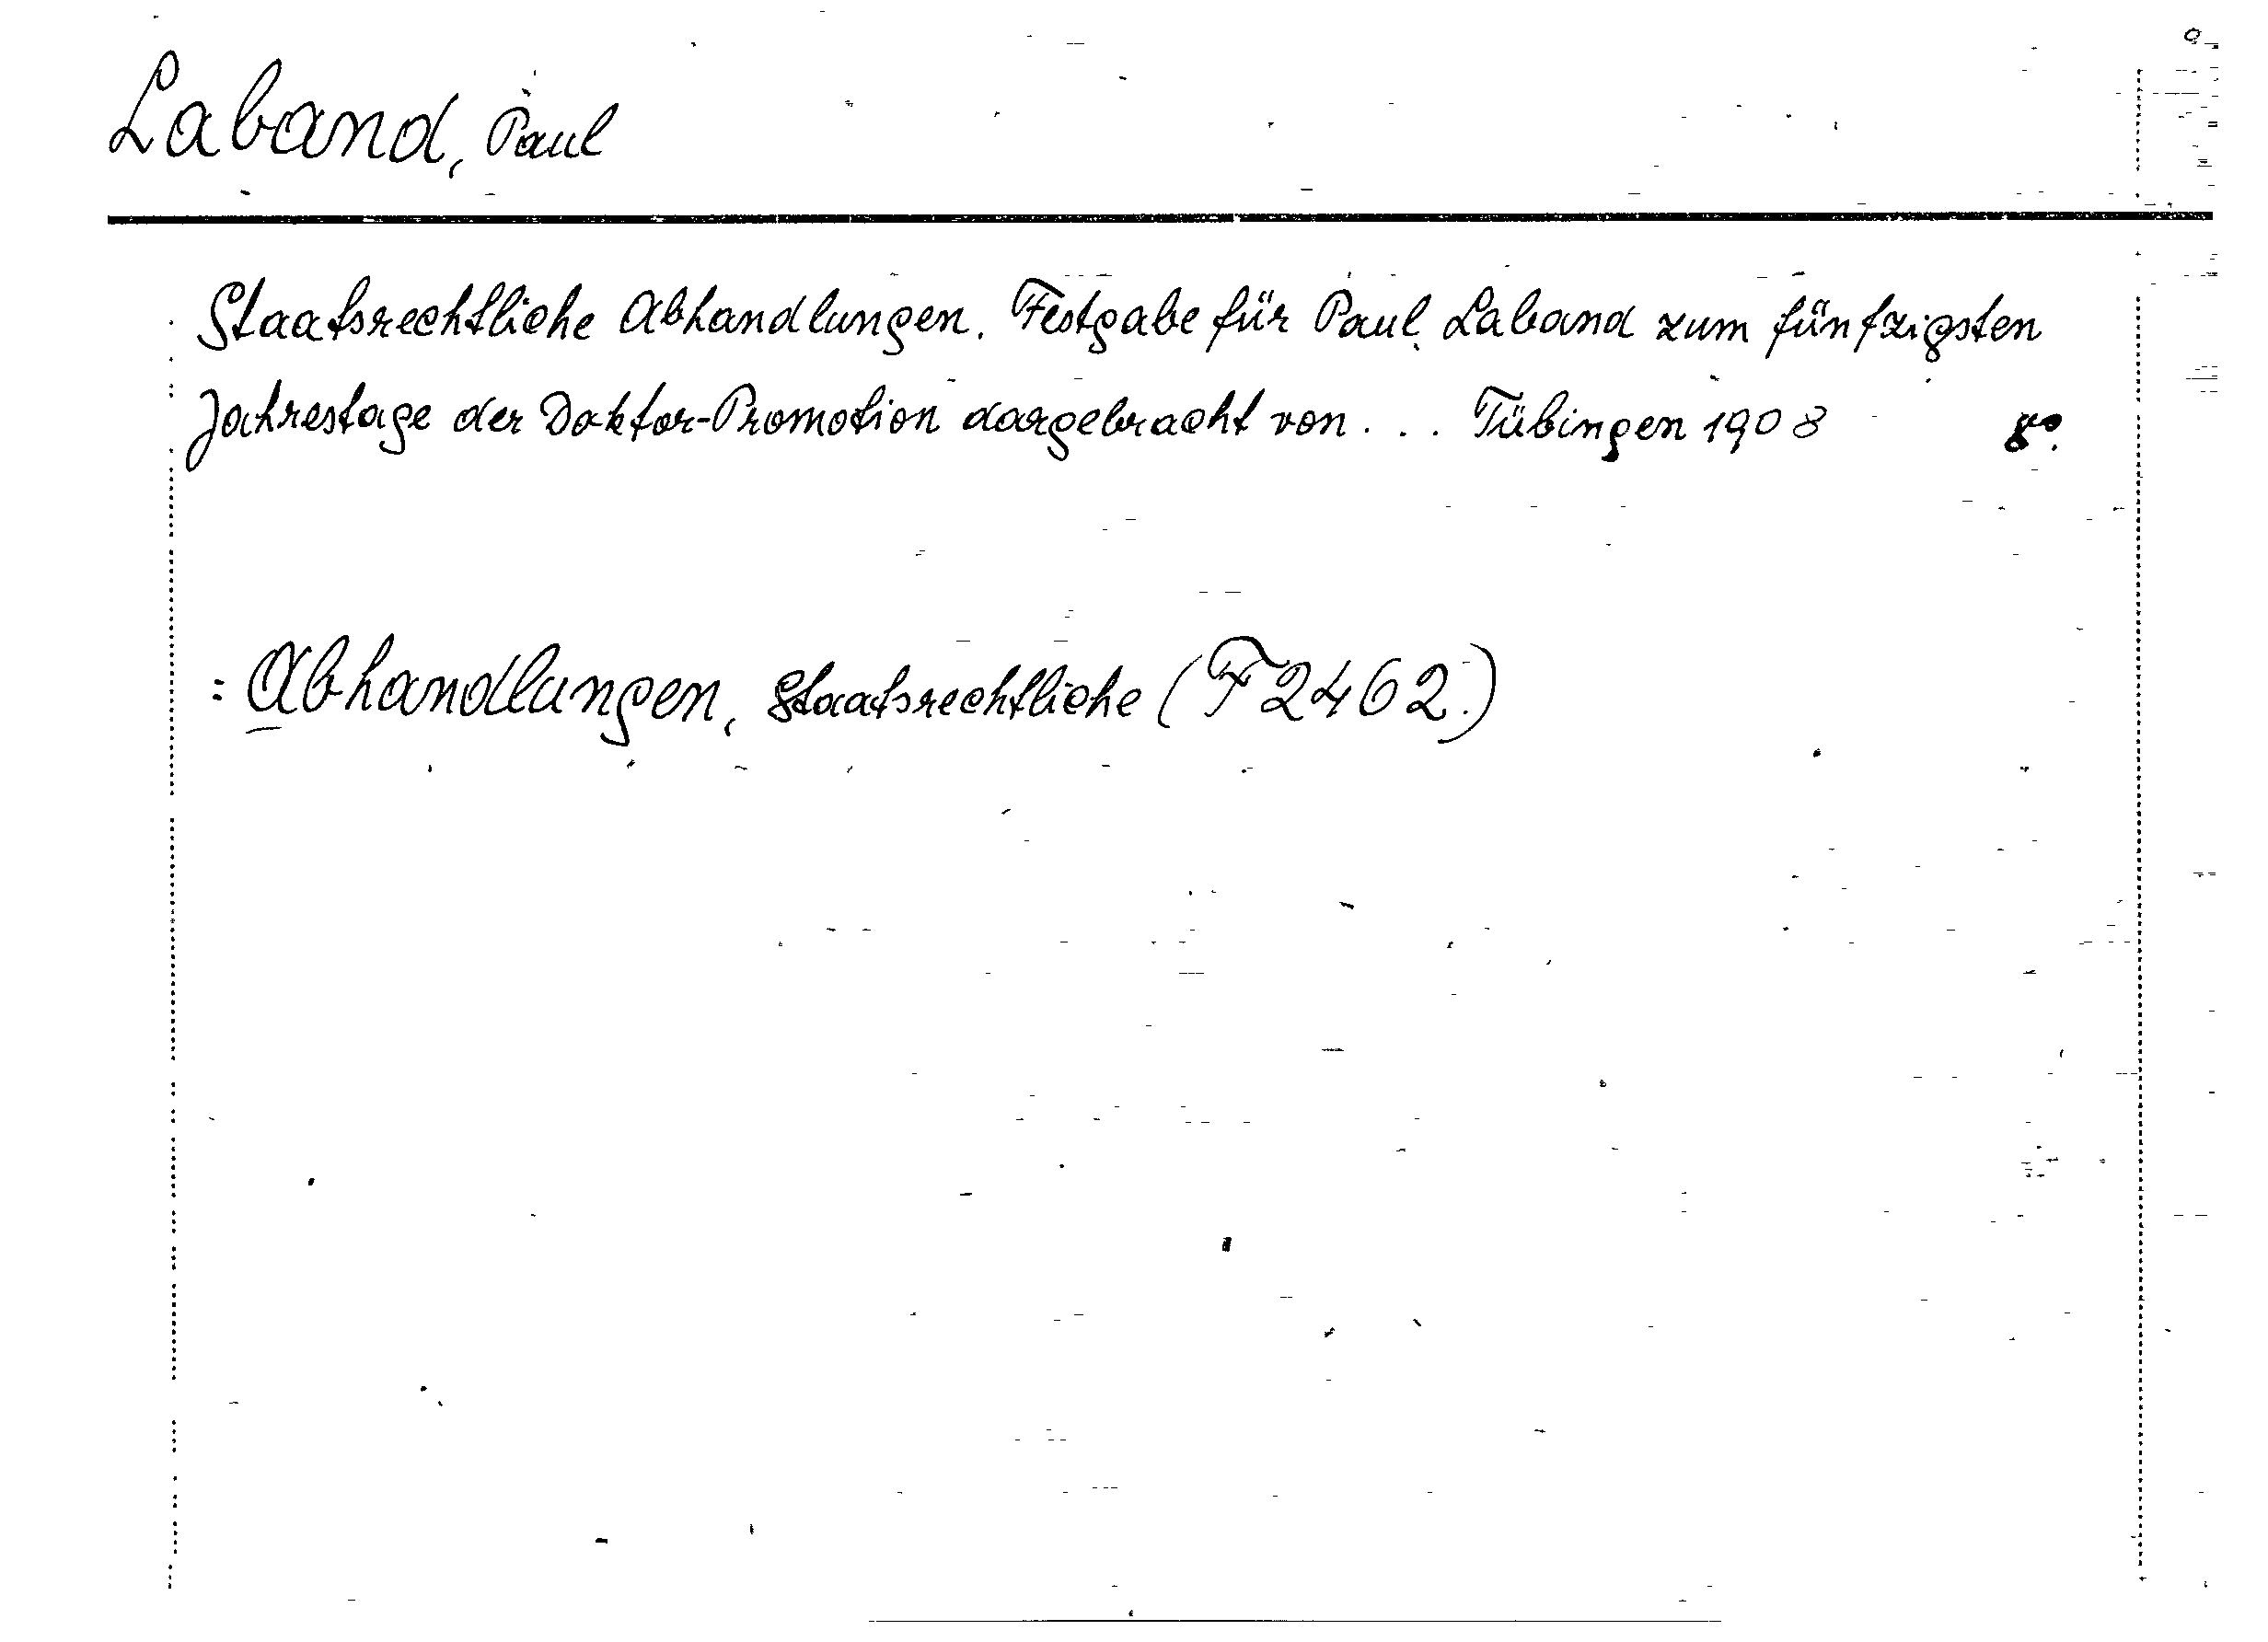 Laband, Paul
Staatsrechtliche Abhandlungen. Festgabe für Paul Laband zum fünfzigsten
Jahrestage der Doktor-Promotion dargebracht von... Tübingen 1908 8°.
= Abhandlungen, Staatsrechtliche (F2462.)